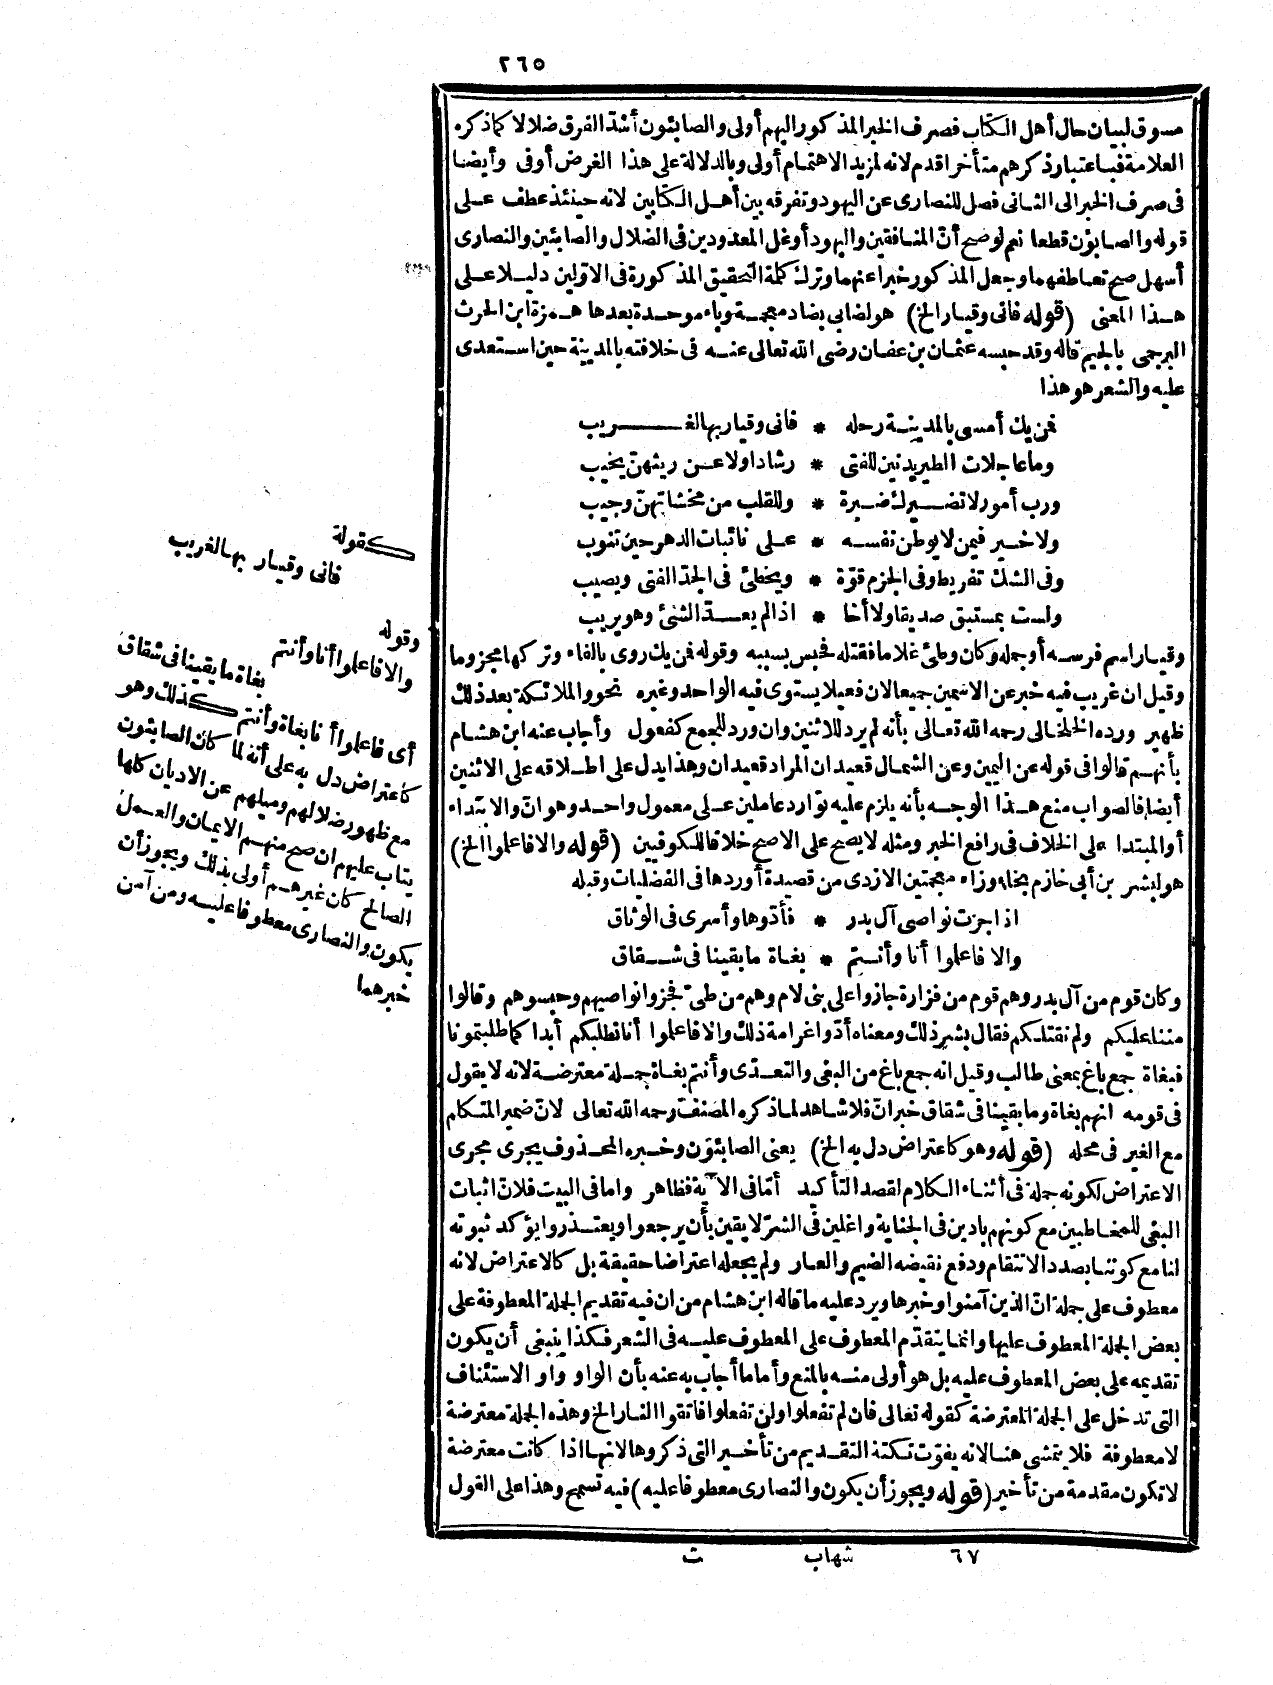 ٢٦٥
مسوق لبيان حال أهل الكتاب فصرف الخبر المذكور اليهم أولى والصابئون أشدّ الفرق ضلالا كما ذكره
العلامة فباعتبار ذكرهم متأخرا قدم لانه لمزيد الاهتمام أولى وبالدلالة على هذا الغرض أوفى وأيضا
فى صرف الخبر الى الثانى فصل للنصارى عن اليهود وتفرقه بين أهل الكتابين لانه حينئذ عطف على
قوله والصابؤن قطعا نعم لو صح أنّ المنافقين واليهود أوغل المعدودين فى الضلال والصابئين والنصارى
أسهل صح تعاطفهما وجعل المذكور خبرا عنهما وترك كلمة التحقيق المذكورة فى الاوّلين دليلا على
هذا المعنى (قوله فانى وقيار الخ) هو لضابى بضاد معجمة وباء موحدة بعدها همزة ابن الحرث
البرجمى بالجيم قاله وقد حبسه عثمان بن عفان رضى الله تعالى عنه فى خلافته بالمدينة حين استعدى
عليه والشعر هو هذا
فمن يك أمسى بالمدينة رحله * فانى وقيار بها لغريب
وما عاجلات الطير يدنين للفتى * رشادا ولا عن ريثهنّ يخيب
ورب أمور لا تضيرك ضيرة * وللقلب من مخشاتهنّ وجيب
ولا خير فيمن لا يوطن نفسه * على نائبات الدهر حين تنوب
وفى الشك تفريط وفى الحزم قوّة * ويخطئ فى الحدّ الفتى ويصيب
ولست بمستبق صديقا ولا أخا * اذا لم يعدّ الشئ وهو يريب
وقيار اسم فرسه أو جمله وكان وطئ غلاما فقتله فحبس بسببه وقوله فمن يك روى بالفاء وتركها مجزوما
وقيل ان غريب فيه خبر عن الاسمين جميعا لان فعيلا يستوى فيه الواحد وغيره نحو والملائكة بعد ذلك
ظهير ورده الخلخالى رحمه الله تعالى بأنه لم يرد للاثنين وان ورد للجمع كفعول وأجاب عنه ابن هشام
بأنهم قالوا فى قوله عن اليمين وعن الشمال قعيد ان المراد قعيدان وهذا يدل على اطلاقه على الاثنين
أيضا فالصواب منع هذا الوجه بأنه يلزم عليه توارد عاملين على معمول واحد وهو انّ والابتداء
أو المبتدا على الخلاف فى رافع الخبر ومثله لا يصح على الاصح خلافا للكوفيين (قوله والا فاعلوا الخ)
هو لبشر بن أبى خازم بخاء وزاء معجمتين الازدى من قصيدة أوردها فى الفضليات وقبله
اذا جزت نواصى آل بدر * فأدّوها وأسرى فى الوثاق
والا فاعلموا أنا وأنتم * بغاة ما بقينا فى شقاق
وكان قوم من آل بدر وهم قوم من فزارة جازوا على بنى لام وهم من طىّ فجزوا نواصيهم وحبسوهم وقالوا
مننا عليكم ولم نقتلكم فقال بشر ذلك ومعناه أدّوا غرامة ذلك والا فاعلموا أنا نطلبكم أبدا كما طلبتمونا
فبغاة جمع باغ بمعنى طالب وقيل انه جمع باغ من البغى والتعدّى وأنتم بغاة جملة معترضة لانه لا يقول
فى قومه انهم بغاة وما بقينا فى شقاق خبر انّ فلا شاهد لما ذكره المصنف رحمه الله تعالى لانّ ضمير المتكلم
مع الغير فى محله (قوله وهو كاعتراض دل به الخ) يعنى الصابئون وخبره المحذوف يجرى مجرى
الاعتراض لكونه جملة فى أثناء الكلام لقصد التأكيد أمّا فى الآية فظاهر واما فى البيت فلانّ اثبات
البغى للمخاطبين مع كونهم بادين فى الجناية واغلين فى الشرّ لا يقين بأن يرجعوا ويعتذروا يؤكد ثبوته
لنا مع كوننا بصدد الانتقام ودفع نقيضه الضيم والعار ولم يجعله اعتراضا حقيقة بل كالاعتراض لانه
معطوف على جملة انّ الذين آمنوا وخبرها ويرد عليه ما قاله ابن هشام من ان فيه تقديم الجملة المعطوفة على
بعض الجملة المعطوف عليها وانما يتقدّم المعطوف على المعطوف عليه فى الشعر فكذا ينبغى أن يكون
تقديمه على بعض المعطوف عليه بل هو أولى منه بالمنع وأما ما أجاب به عنه بأن الواو واو الاستئناف
التى تدخل على الجملة المعترضة كقوله تعالى فان لم تفعلوا ولن تفعلوا فاتقوا النار الخ وهذه الجملة معترضة
لا معطوفة فلا يتمشى هنا لانه يفوّت نكتة التقديم من تأخير التى ذكروها لانها اذا كانت معترضة
لا تكون مقدمة من تأخير (قوله ويجوز أن يكون والنصارى معطوفا عليه) فيه تسمح وهذا على القول
كقوله
فانى وقيار بها لغريب
وقوله
والا فاعلوا أنا وأنتم
بغاة ما بقينا فى شقاق
أى فاعلوا أنا بغاة وأنتم كذلك وهو
كاعتراض دل به على أنه لما كان الصابئون
مع ظهور ضلالهم وميلهم عن الاديان كلها
يتاب عليهم ان صح منهم الايمان والعمل
الصالح كان غيرهم أولى بذلك ويجوز أن
يكون والنصارى معطوفا عليه ومن آمن
خبرهما
٦٧ شهاب ت